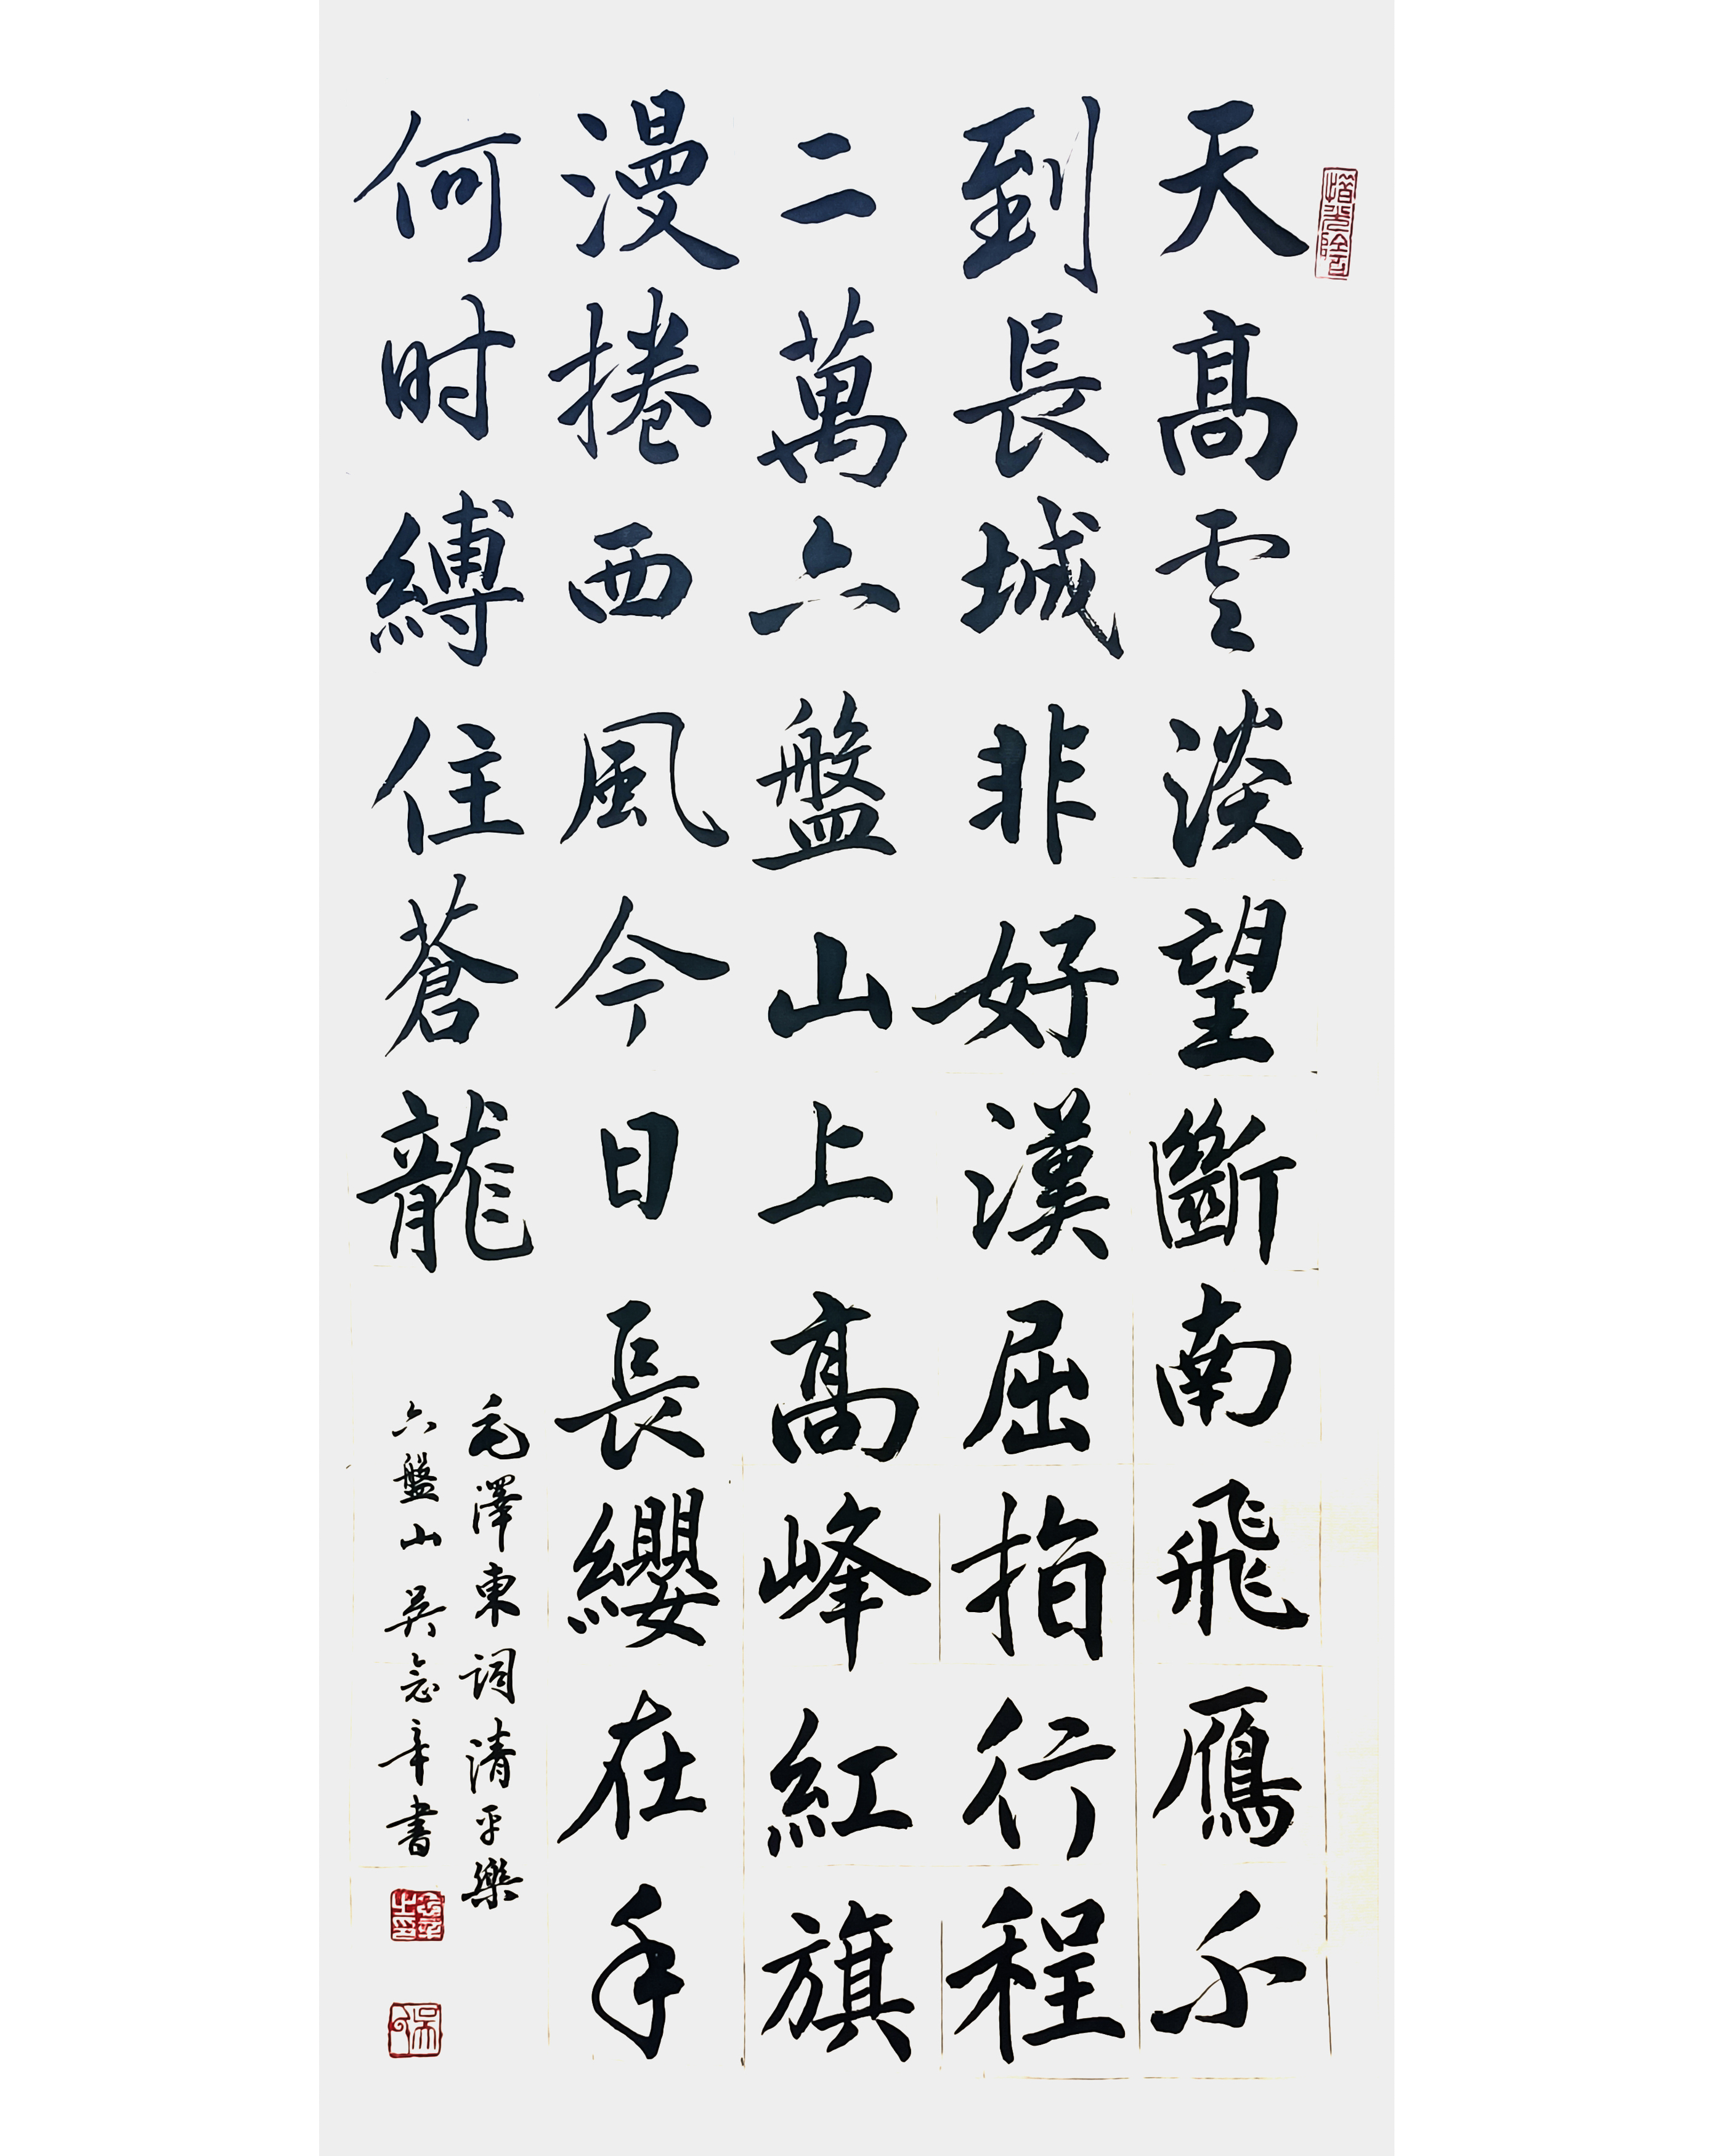 惜光陰
天高雲淡望斷南飛雁不
到長城非好漢屈指行程
二萬六盤山上高峰紅旗
漫捲西風今日長纓在手
何时縛住蒼龍
毛澤東詞清平樂
六盤山 吳辛書